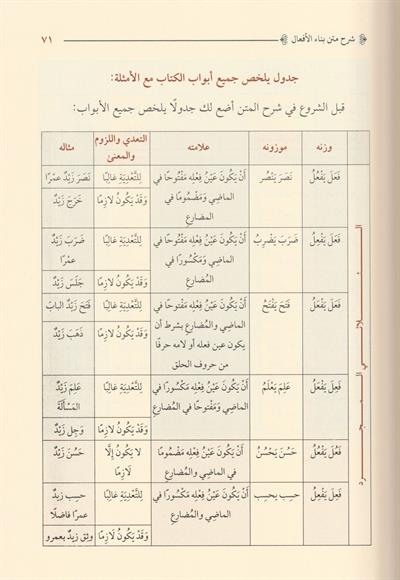 شرح متن بناء الأفعال
٧١
جدول يلخص جميع أبواب الكتاب مع الأمثلة:
قبل الشروع في شرح المتن أضع لك جدولًا يلخص جميع الأبواب:
وزنه موزونه علامته التعدي واللزوم والمعنى مثاله
الثلاثي المجرد
فَعَلَ يَفْعُلُ
نَصَرَ يَنْصُرُ
أَنْ يَكُونَ عَيْنُ فِعْلِهِ مَفْتُوحًا في
الماضِي وَمَضْمُومًا في
المضارِعِ
لِلتَّعْدِيَةِ غَالِبًا
وَقَدْ يَكُونُ لازِمًا
نَصَرَ زَيْدٌ عمْرًا
خَرَجَ زَيْدٌ
فَعَلَ يَفْعِلُ
ضَرَبَ يَضْرِبُ
أَنْ يَكُونَ عَيْنُ فِعْلِهِ مَفْتُوحًا في
الماضِي وَمَكْسُورًا في
المضارِعِ
لِلتَّعْدِيَةِ غَالِبًا
وَقَدْ يَكُونُ لازِمًا
ضَرَبَ زَيْدٌ
عمْرًا
جَلَسَ زَيْدٌ
فَعَلَ يَفْعَلُ
فَتَحَ يَفْتَحُ
أَنْ يَكُونَ عَيْنُ فِعْلِهِ مَفْتُوحًا في
الماضِي والمُضارِعِ بشرط أن
يكون عين فعله أو لامه حرفًا
من حروف الحلق
لِلتَّعْدِيَةِ غَالِبًا
وَقَدْ يَكُونُ لازِمًا
فَتَحَ زَيْدٌ البابَ
ذَهَبَ زَيْدٌ
فَعِلَ يَفْعَلُ
عَلِمَ يَعْلَمُ
أَنْ يَكُونَ عَيْنُ فِعْلِهِ مَكْسُورًا في
الماضِي وَمَفْتوحًا في المضارِعِ
لِلتَّعْدِيَةِ غَالِبًا
وَقَدْ يَكُونُ لازِمًا
عَلِمَ زَيْدٌ
المَسْأَلَةَ
وَجِل زَيْدٌ
فَعُلَ يَفْعُلُ
حَسُنَ يَحْسُنُ
أَنْ يَكُونَ عَيْنُ فِعْلِهِ مَضْمُومًا
في الماضِي والمضارِعِ
لا يَكُونُ إِلَّا
لَازِمًا
حَسُنَ زَيْدٌ
فَعِلَ يَفْعِلُ
حسِب يحسِب
أَنْ يَكُونَ عَيْنُ فِعْلِهِ مَكْسُورًا في
الماضِي والمُضارِعِ
لِلتَّعْدِيَةِ غالِبًا
وَقَدْ يَكُونُ لازِمًا
حسِب زيدٌ
عمرًا فاضلًا
وثِق زيدٌ بعمرو